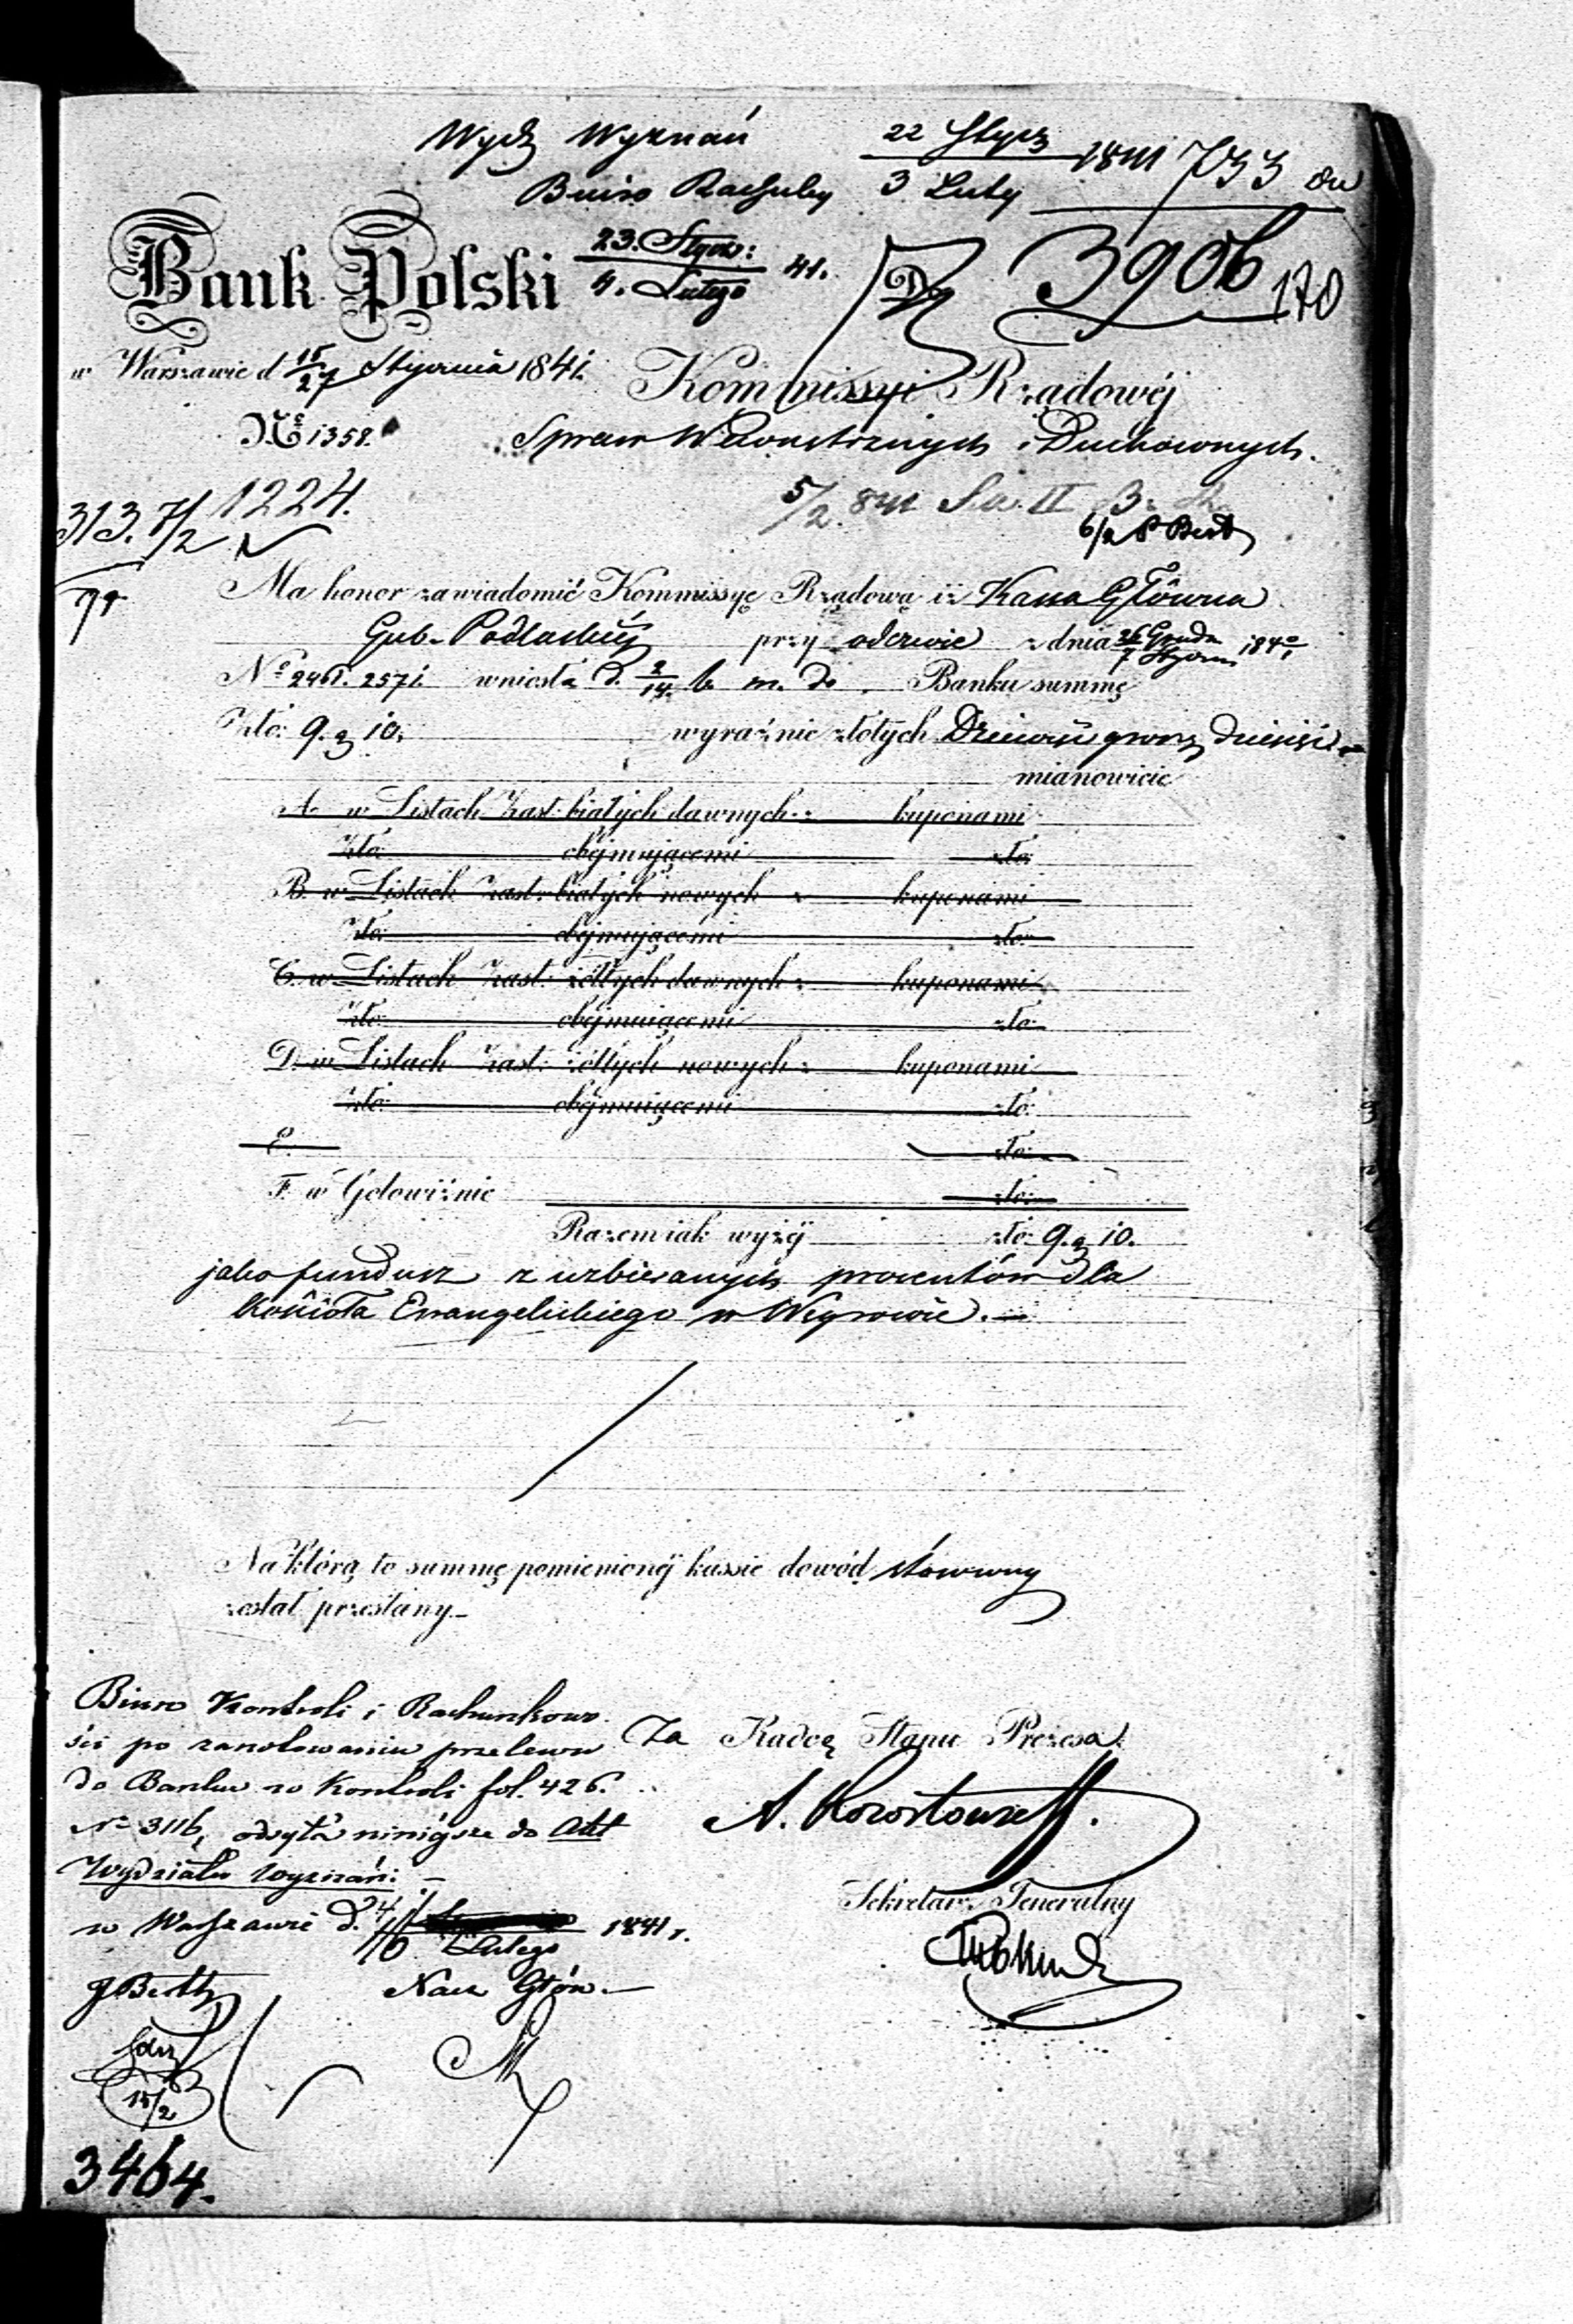 Wydz Wyznań
22 Stycz 1841 733
Biuro Rachuby 3 Luty
Bank Polski 23. Stycz: 41. 3906 170
4. Lutego
w Warszawie d 15/27 Stycznia 1841.
Kommissyi Rządowéj
No 1358.
Spraw Wewnętrznych i Duchownych.
1224.
5/2 841
313. 7/2
6/2
Ma honor zawiadomić Kommissyę Rządową iż Kassa Główna
Gub. Podlaskiéj przy odezwie z dnia 26 Grudn 1840/1
7 Stycznia
No 2461. 2571. wniosła d. 2/14 b. m. do Banku summę
Złó: 9. g 10. wyraźnie złótych Dziewięć groszy dziesięć
mianowicie
A. w Listach Zast: białych dawnych z kuponami
Złó: obéjmującemi złó:
B. w Listach Zast: białych nowych z kuponami
Złó: obéjmującemi złó:
C. w Listach Zast: żółtych dawnych z kuponami
Złó: obéjmującemi złó:
D. w Listach Zast: żółtych nowych z kuponami
Złó: obéjmującemi złó:
E. złó:
F. w Gotowiźnie złó:
Razem iak wyżéj złó: 9. g 10.
jako fundusz z uzbieranych procentów dla
Kościoła Ewangelickiego w Węgrowie.
Na którą to summę pomienionéj kassie dowód stósowny
został przesłany
Biuro Kontroli i Rachunkowo
ści po zanotowaniu przelewu
do Banku w Kontroli fol. 426.
No 3116, odsyła niniéjsze do Akt
Wydziału Wyznań:
w Warszawie d. 4/16 Lutego 1841 r.
Nacz Głów.
Za Radcę Stanu Prezesa
Sekretarz Jeneralny
15/2
3464.